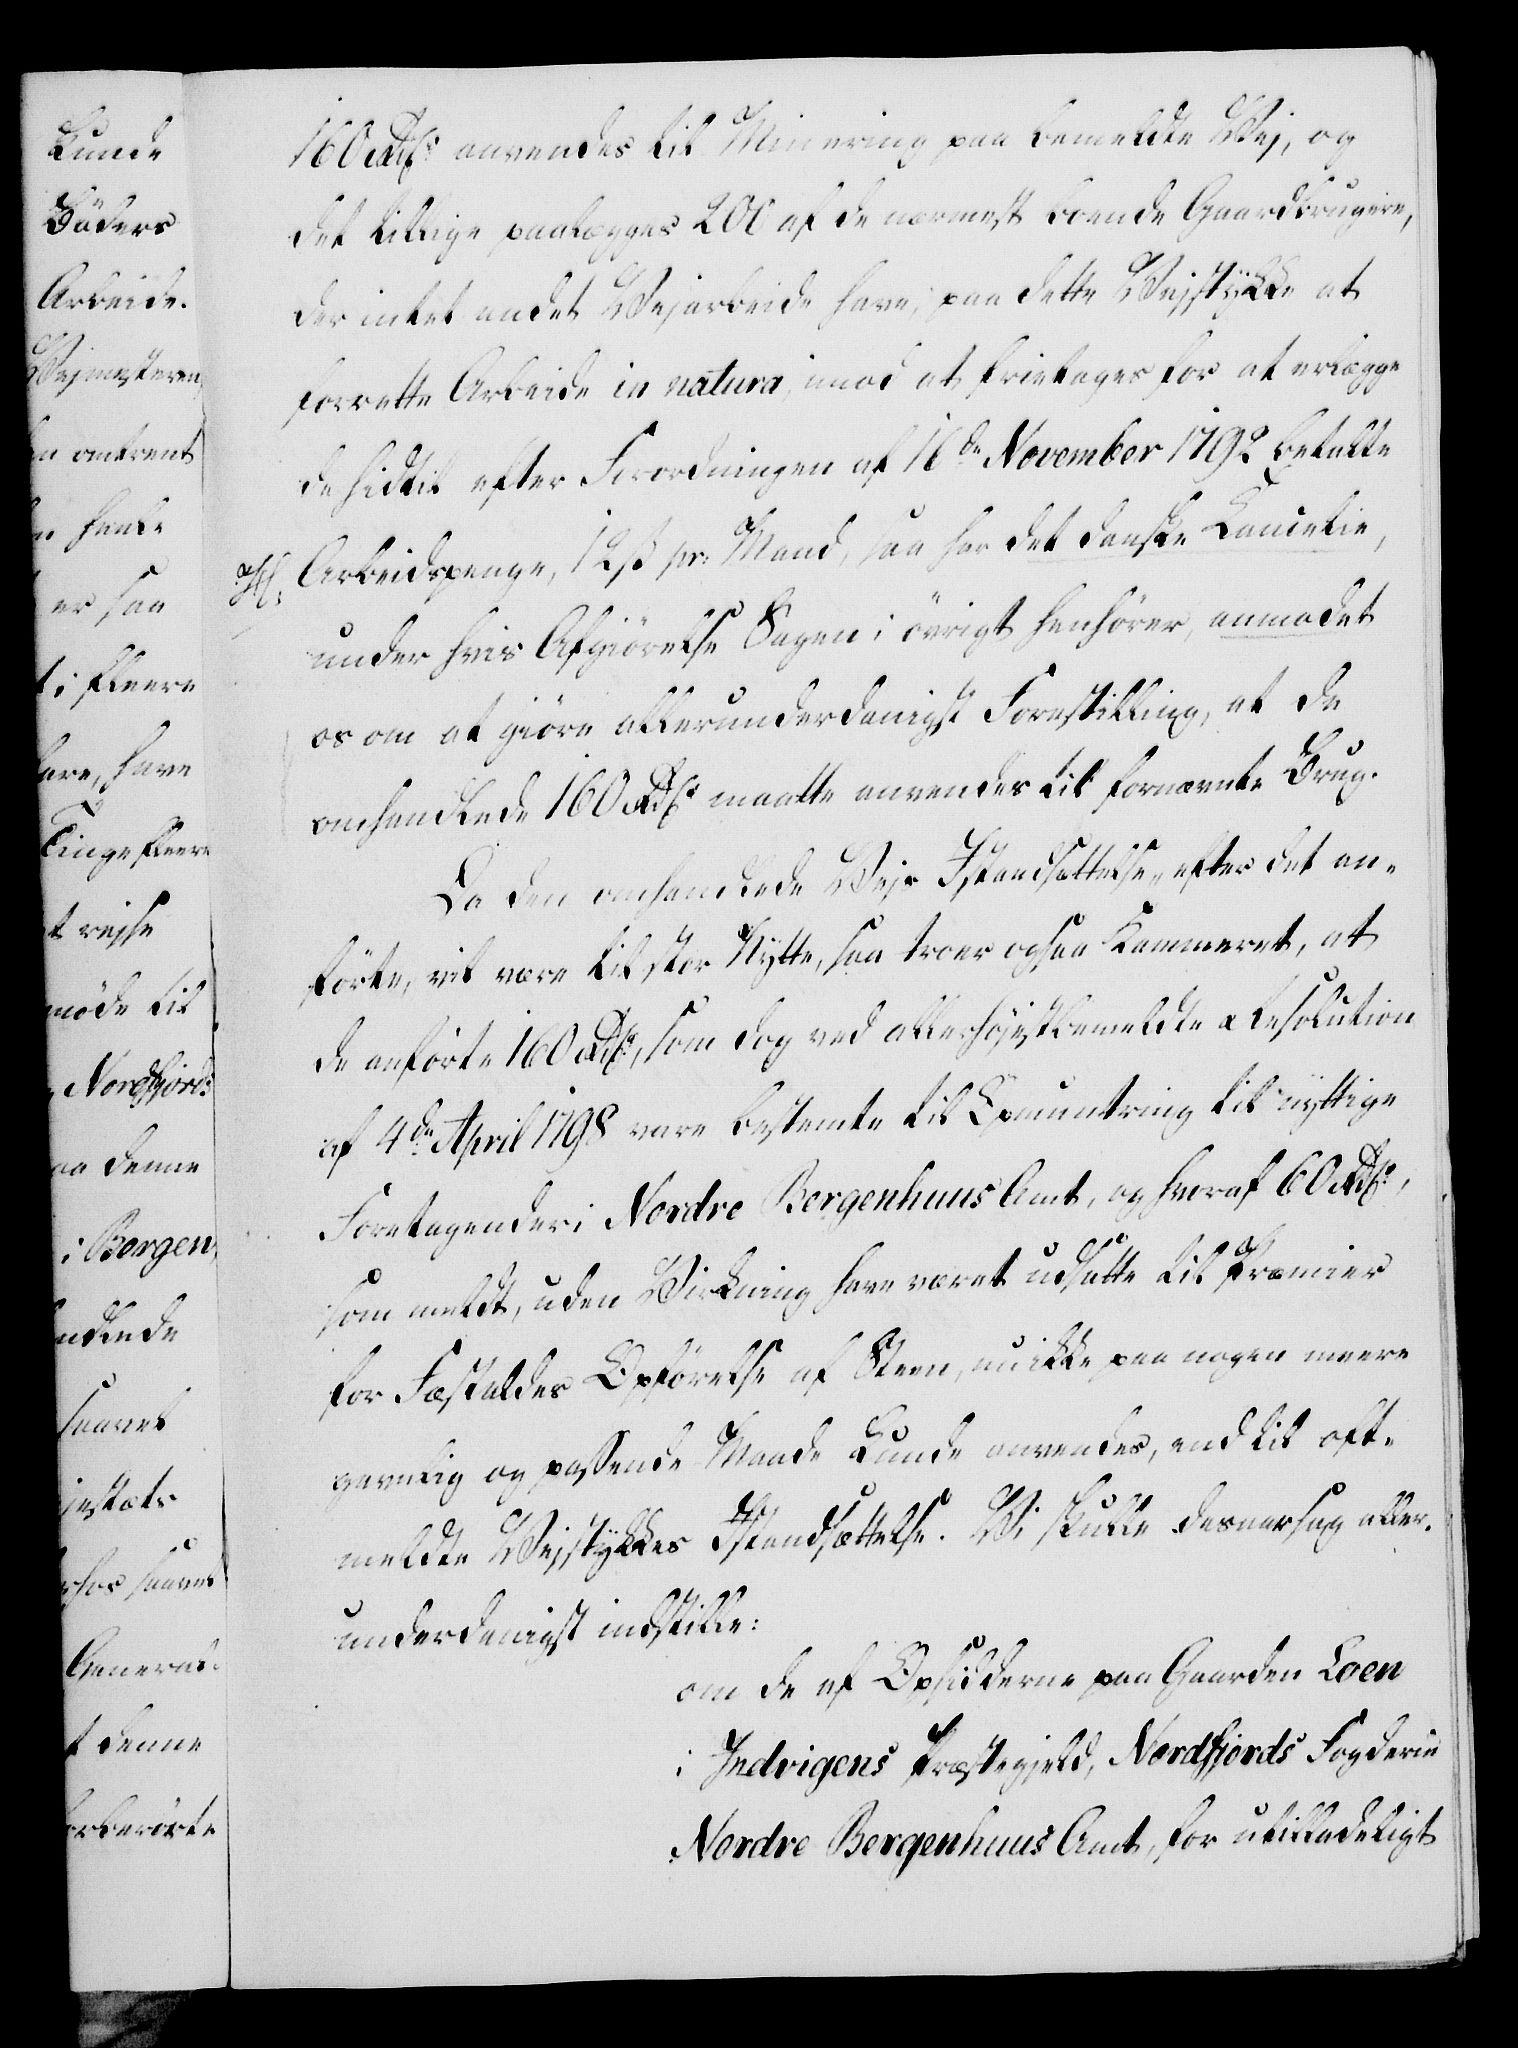 Kunde
Böders
Arbeide.
Vejmesteren,
n omtrent
n havde
er saa
t i fleere
have, have
Tinge fleere
t rejse
möde til
Nordfjords
aa denne
i Bergen,
ndlede
saavel
jestæts
rhos saavel
General-
t denne
orberörte
160 Rdlr anvendes til Minering paa bemeldte Vej, og
det tillige paalægges 200 af de nærmest boende Gaardbrugere,
der intet andet Vejarbeide have, paa dette Vejstykke at
forrette Arbeide in natura, imod at fritages for at erlægge
de hidtil efter Forordningen af 16de November 1792 betalte
Arbeidspenge, 12 ß pr: Mand, saa har det danske Cancelie,
under hvis Afgiörelse Sagen i övrigt henhörer, anmodet
os om at giöre allerunderdanigst Forestilling, at de
omhandlede 160 Rdlr maatte anvendes til fornævnte Brug.
Da den omhandlede Vejs Istandsættelse, efter det an-
förte, vil være til stor Nytte, saa troer ogsaa Kammeret, at
de anförte 160 Rdlr, som dog ved allerhöjstbemeldte Resolution
af 4de April 1798 vare bestemte til Opmuntring til nyttige
Foretagender i Nordre Bergenhuus Amt, og hvoraf 60 Rdlr,
som meldt, uden Virkning have været udsatte til Præmier
for Fæstaldes Opförelse af Steen, nu ikke paa nogen meere
gavnlig og passende Maade kunde anvendes, end til oft-
meldte Vejstykkes Istandsættelse. Vi skulle desaarsag aller-
underdanigst indstille:
om de af Opsidderne paa Gaarden Loen
i Indvigens Præstegjeld, Nordfjords Fogderie
Nordre Bergenhuus Amt, for utilladeligt